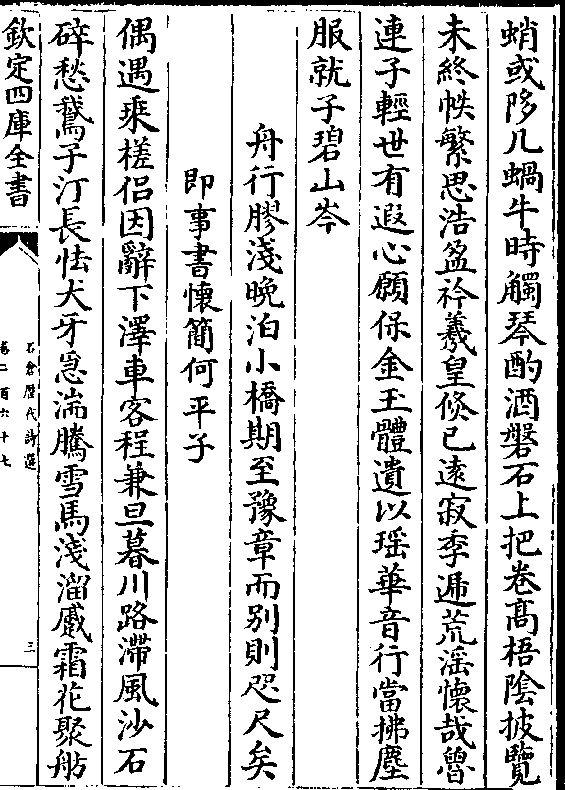 蛸或陊几蝸牛時觸琴酌酒磐石上把卷髙梧隂披覽
未終帙繁思浩盈衿羲皇倐已逺寂季遞荒滛懐哉魯
連子輕世有遐心願保金玉體遺以瑶華音行當拂塵
服就子碧山岑
舟行膠淺晚泊小橋期至豫章而别則咫尺矣
即事書懐簡何平子
偶遇乘槎侣因辭下澤車客程兼旦暮川路滯風沙石
碎愁鵞子汀長怯犬牙急湍騰雪馬淺溜蹙霜花聚舫
欽定四庫全書
石倉歴代詩選
卷二百六十七
三